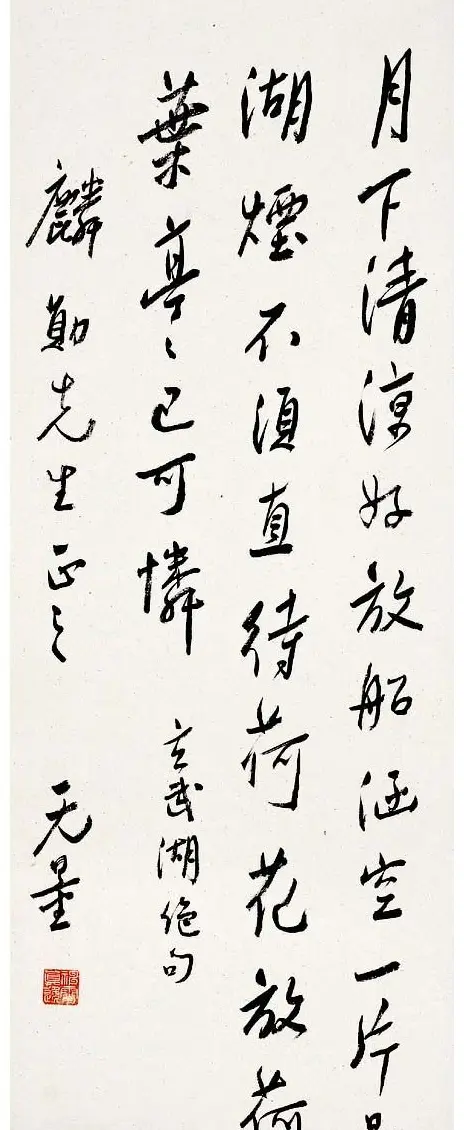 月下清涼好放船涵空一片
湖煙不須直待荷花放荷
葉亭〻已可憐
玄武湖絕句
麟勛先生正之
无量